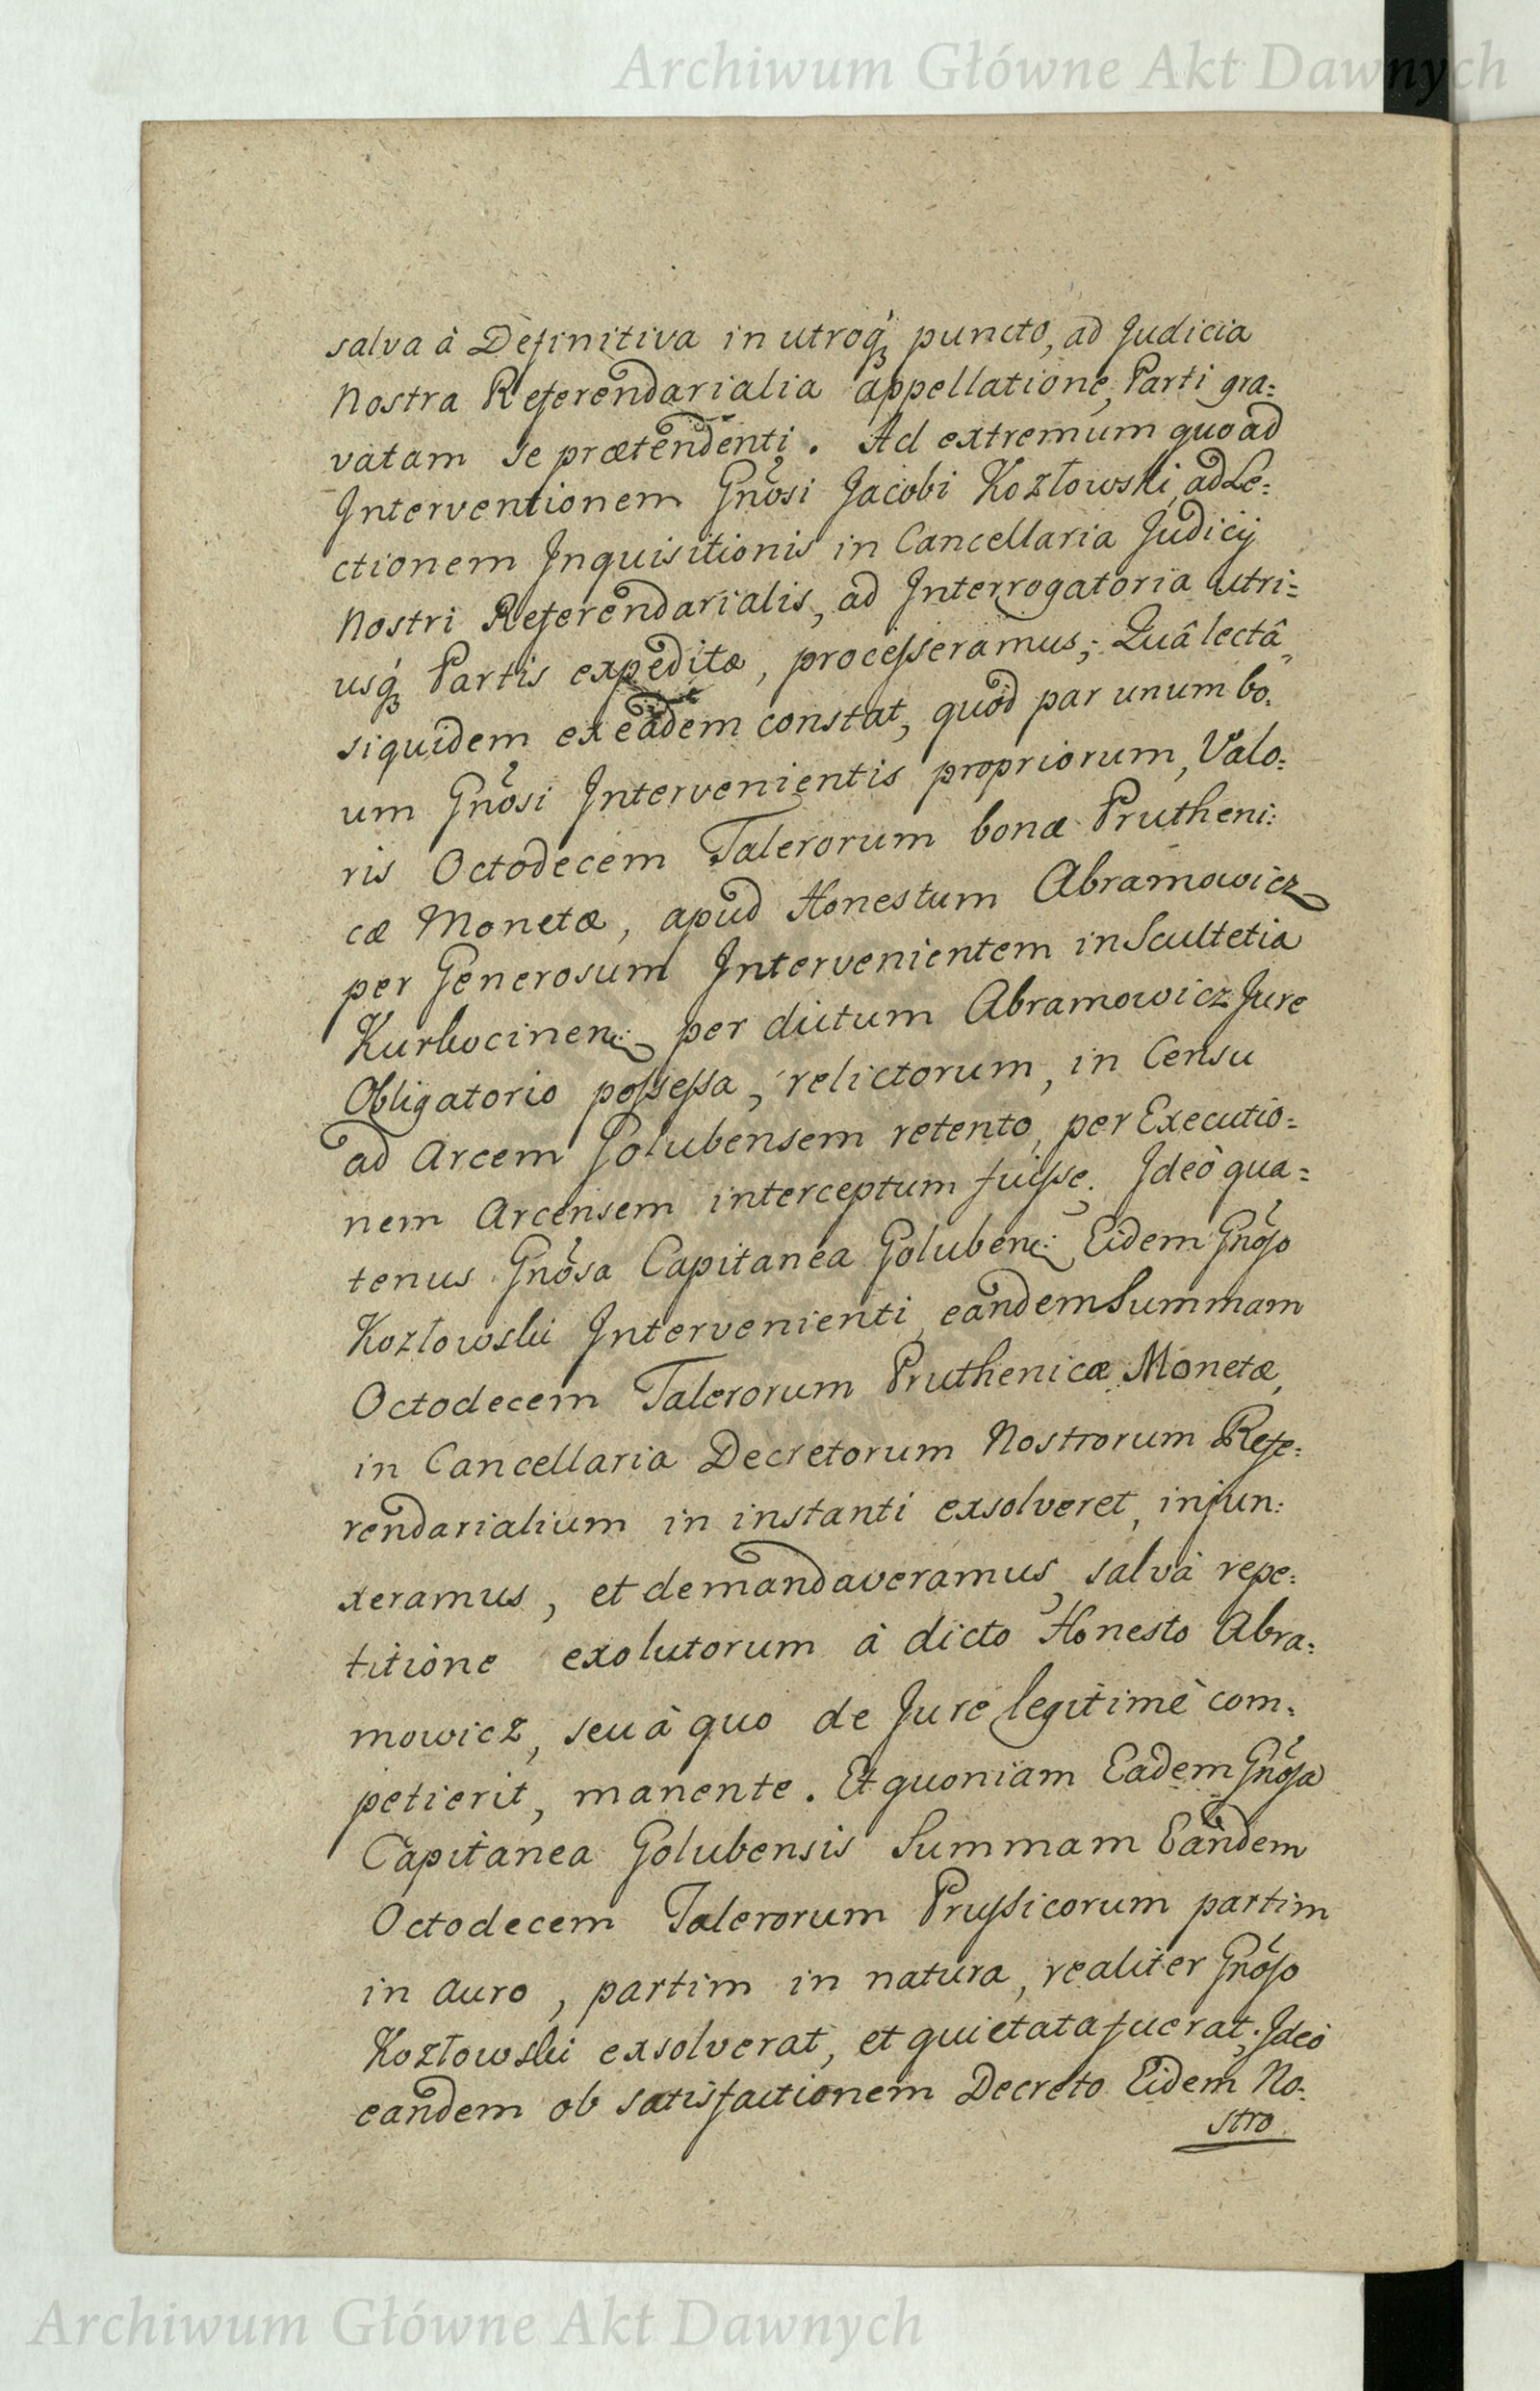 Archiwum Główne Akt Dawnych
salva à Definitiva in utroq́ꝫ puncto, ad Judicia
Nostra Referendarialia appellatione, Parti gra=
vatam se prætendenti. Ad extremum quoad
Interventionem Gnõsi Jacobi Kozłowski, ad Le=
ctionem Inquisitionis in Cancellaria Judicij
Nostri Referendarialis, ad Interrogatoria utri=
usq́ꝫ Partis expeditæ, processeramus; Quâ lectâ,
siquidem ex eadem constat, quod par unum bo=
um Gnõsi Intervenientis propriorum, Valo=
ris Octodecem Talerorum bonæ Prutheni=
cæ Monetæ, apud Honestum Abramowicz
per Generosum Intervenientem in Scultetia
Kurkocinen: per dictum Abramowicz Jure
Obligatorio possessa, relictorum, in Censu
ad Arcem Golubensem retento, per Executio=
nem Arcensem interceptum fuisse. Ideò qua=
tenus Gnõsa Capitanea Goluben: Eidem Gnõso
Kozłowski Intervenienti, eandem Summam
Octodecem Talerorum Pruthenicæ Monetæ,
in Cancellaria Decretorum Nostrorum Refe=
rendarialium in instanti exsolveret, injun=
xeramus, et demandaveramus, salvâ repe=
titione exolutorum à dicto Honesto Abra=
mowicz, seu à quo de Jure legitimè com=
petierit, manente. Et quoniam Eadem Gnõsa
Capitanea Golubensis Summam Eandem
Octodecem Talerorum Prussicorum partim
in auro, partim in natura, realiter Gnõso
Kozłowski exsolverat, et quietata fuerat; Ideò
eandem ob satisfactionem Decreto Eidem No=
stro
Archiwum Główne Akt Dawnych